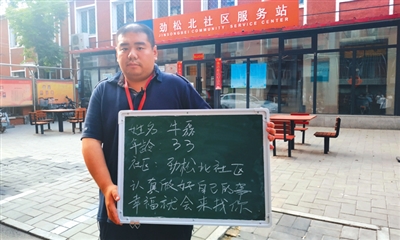 劲松北社区服务站
JINSONGBEI COMMUNITY SERVICE CENTER
姓名：牛磊
年龄：33
社区：劲松北社区
认真做好自己的事
幸福就会来找你